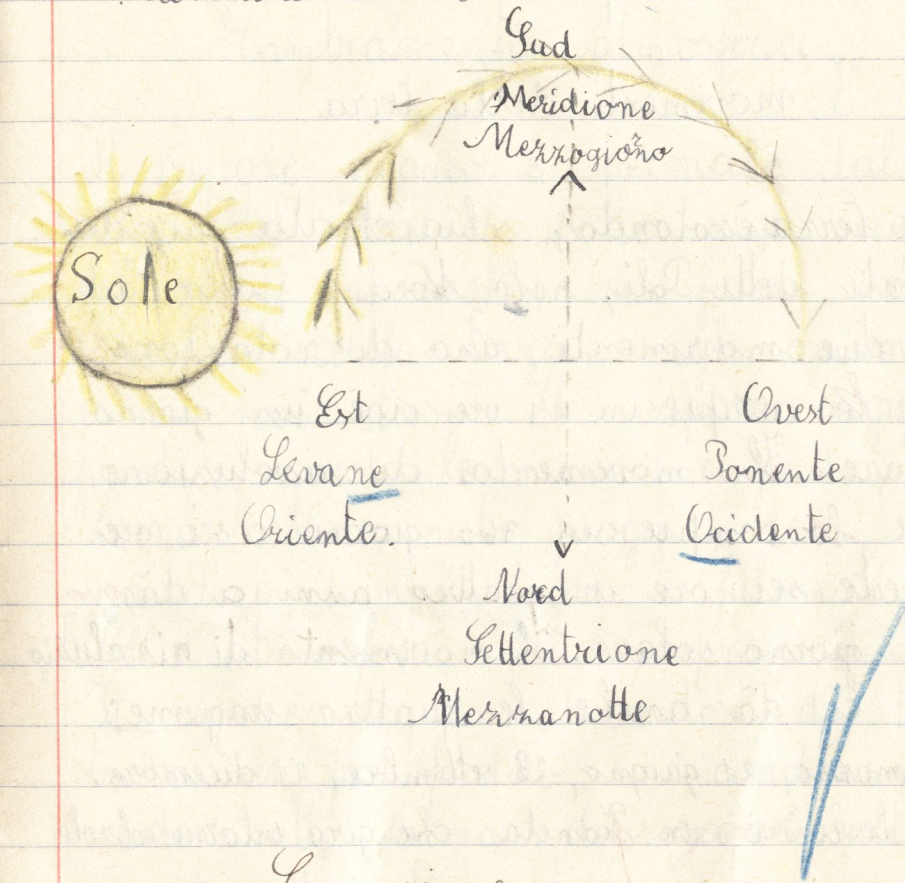 Sud
Meridione
Mezzogiorno
Sole
Est
Levane
Oriente.
Ovest
Ponente
Ocidente
Nord
Settentrione
Mezzanotte